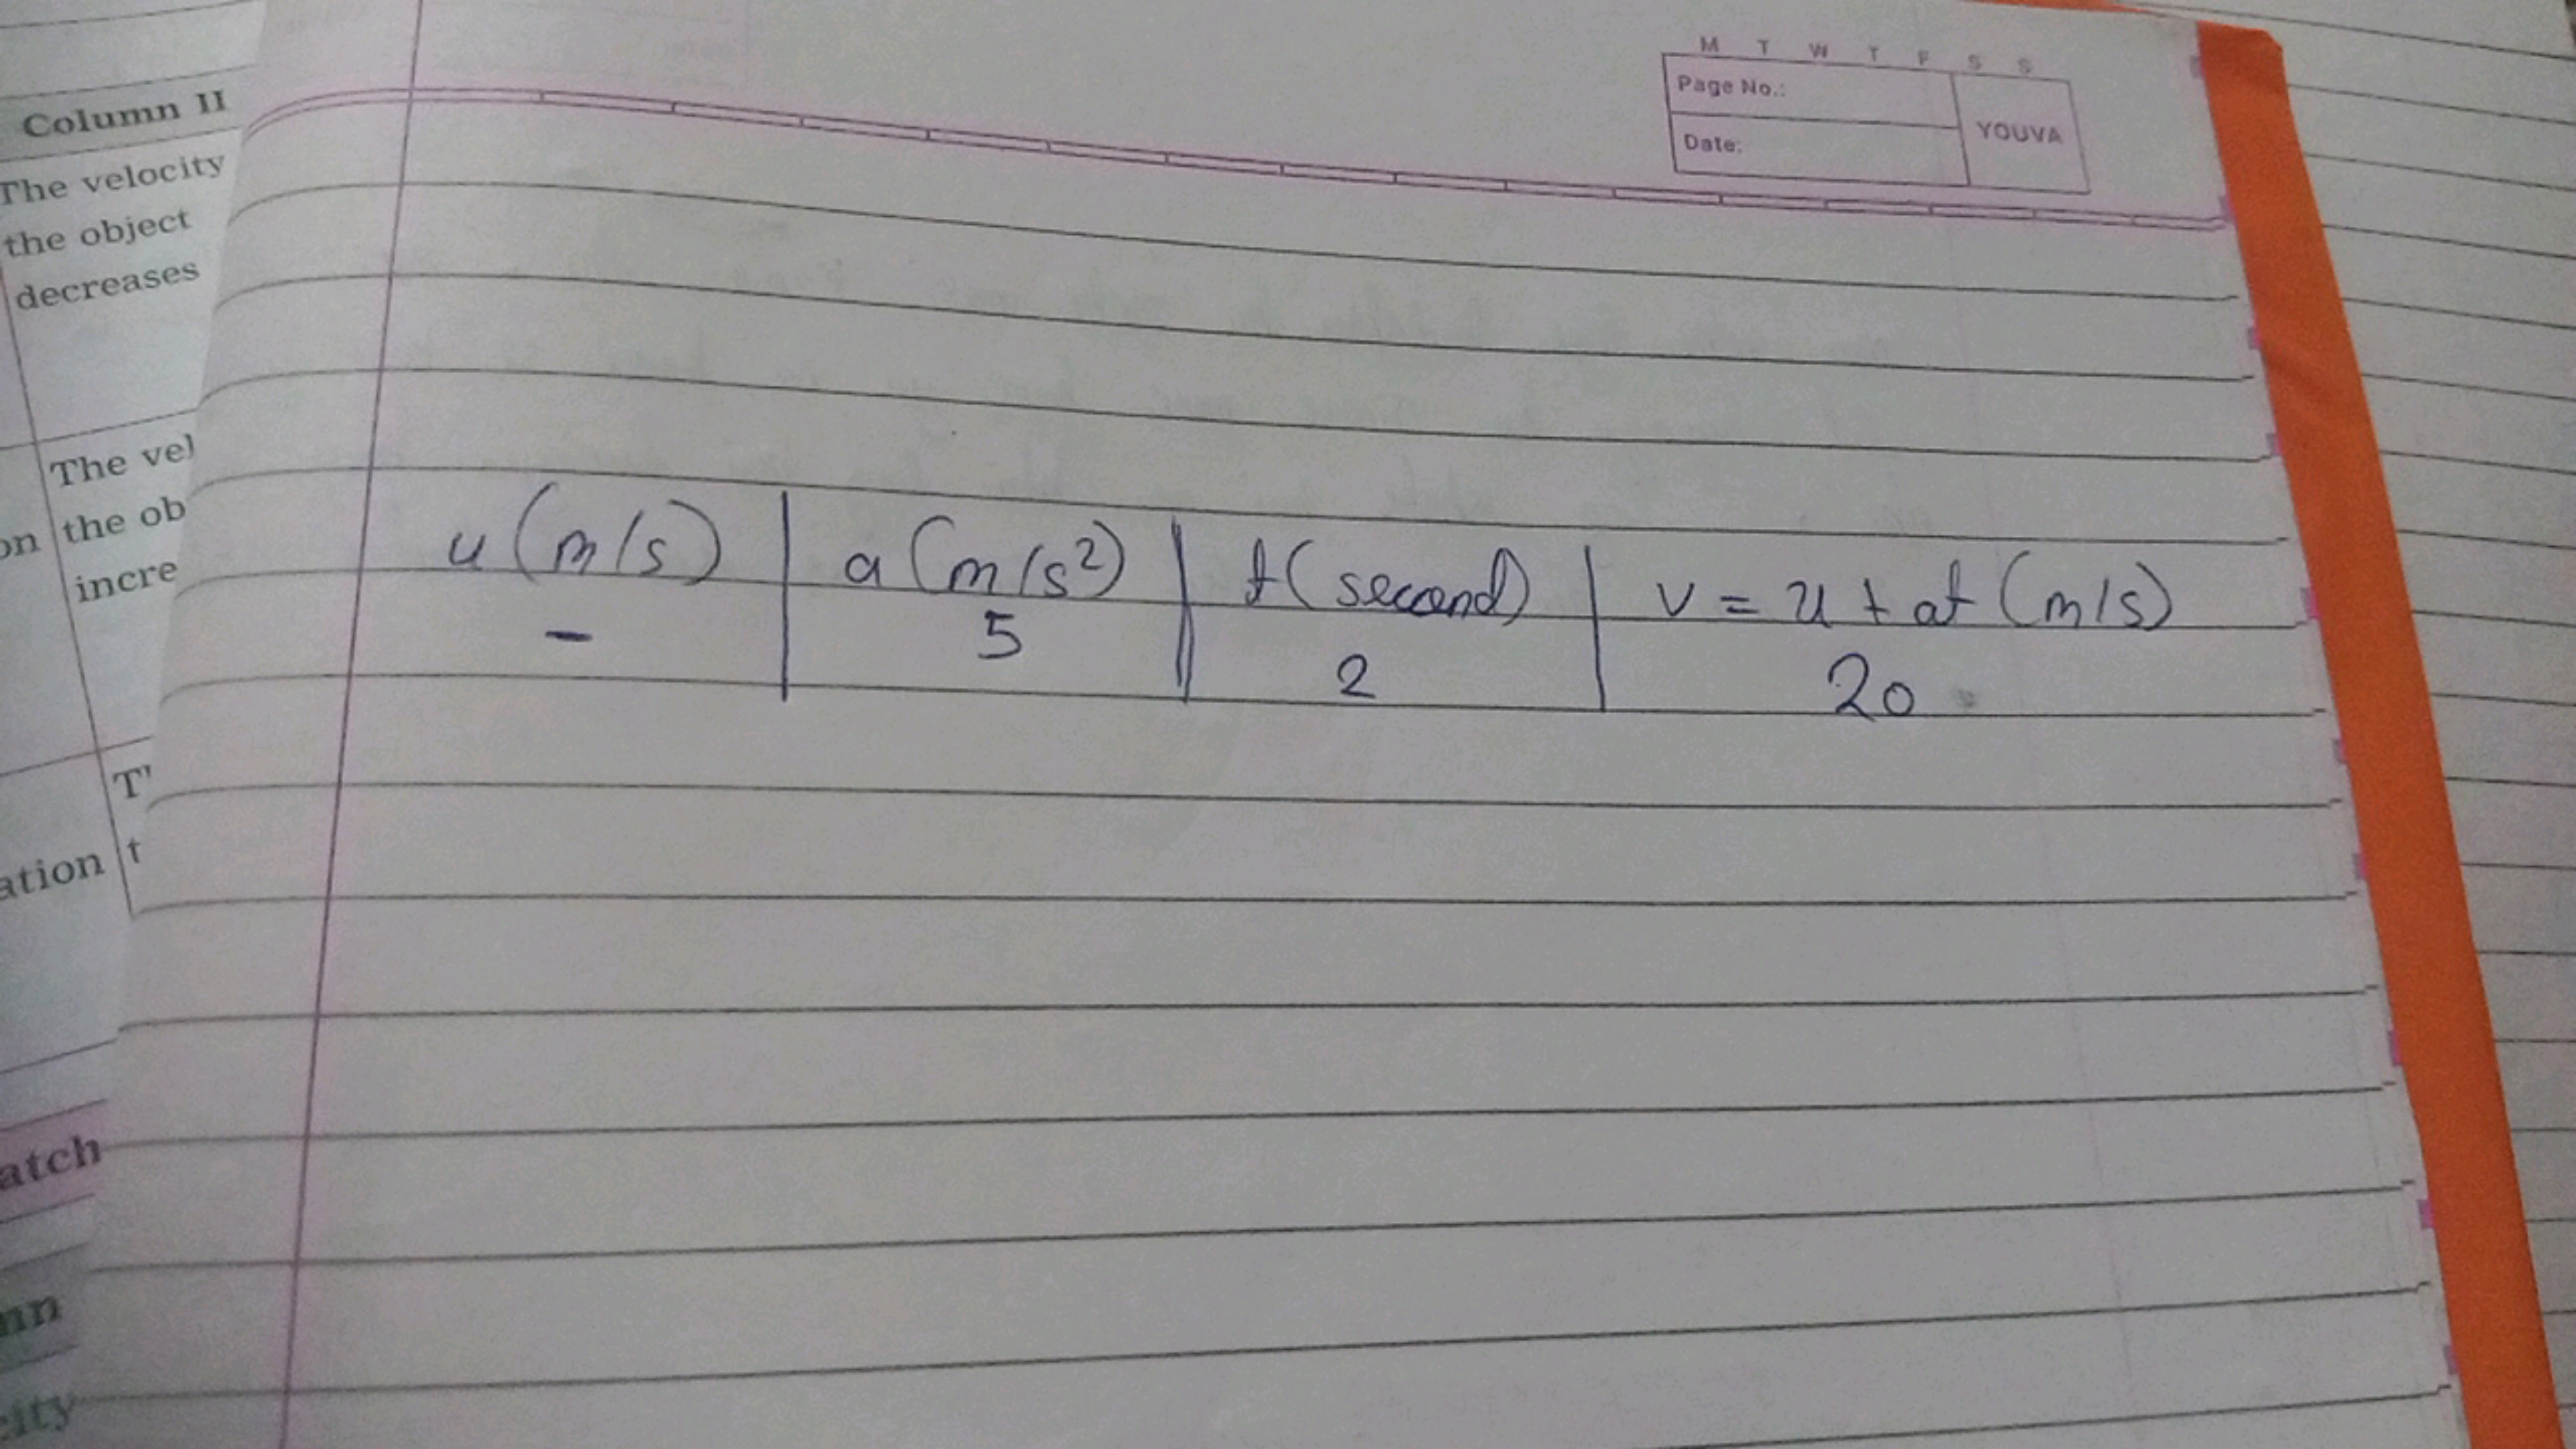 M T W T F S S
Page No.:
YOUVA
Date:
Column II
The velocity
the object
decreases
The vel
on the ob
incre
T'
ation t
atch
city
u (m/s) a (m/s²) t (second) v = u + at (m/s)
- 5 2 20